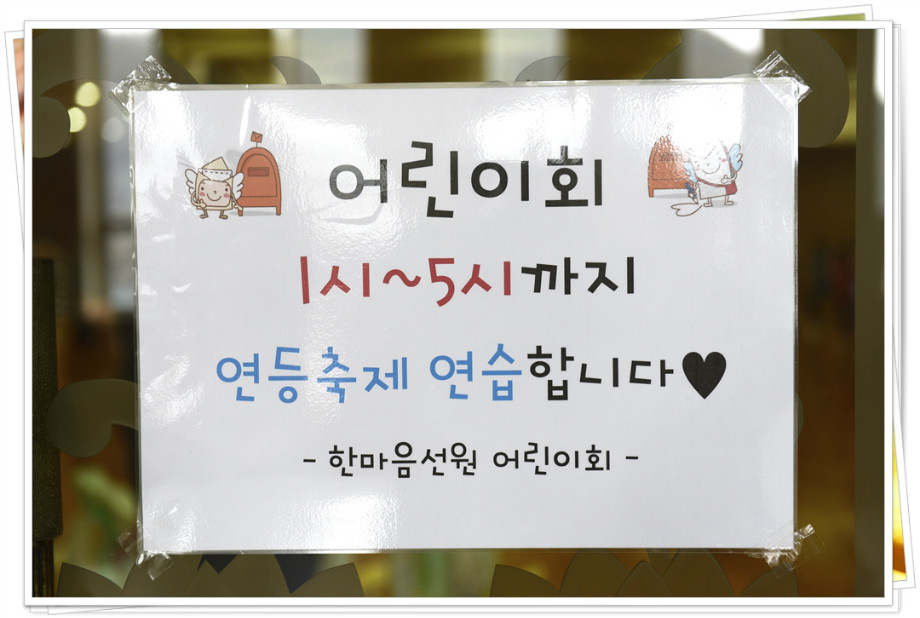 어린이회
1시~5시까지
연등축제 연습합니다♥
- 한마음선원 어린이회 -